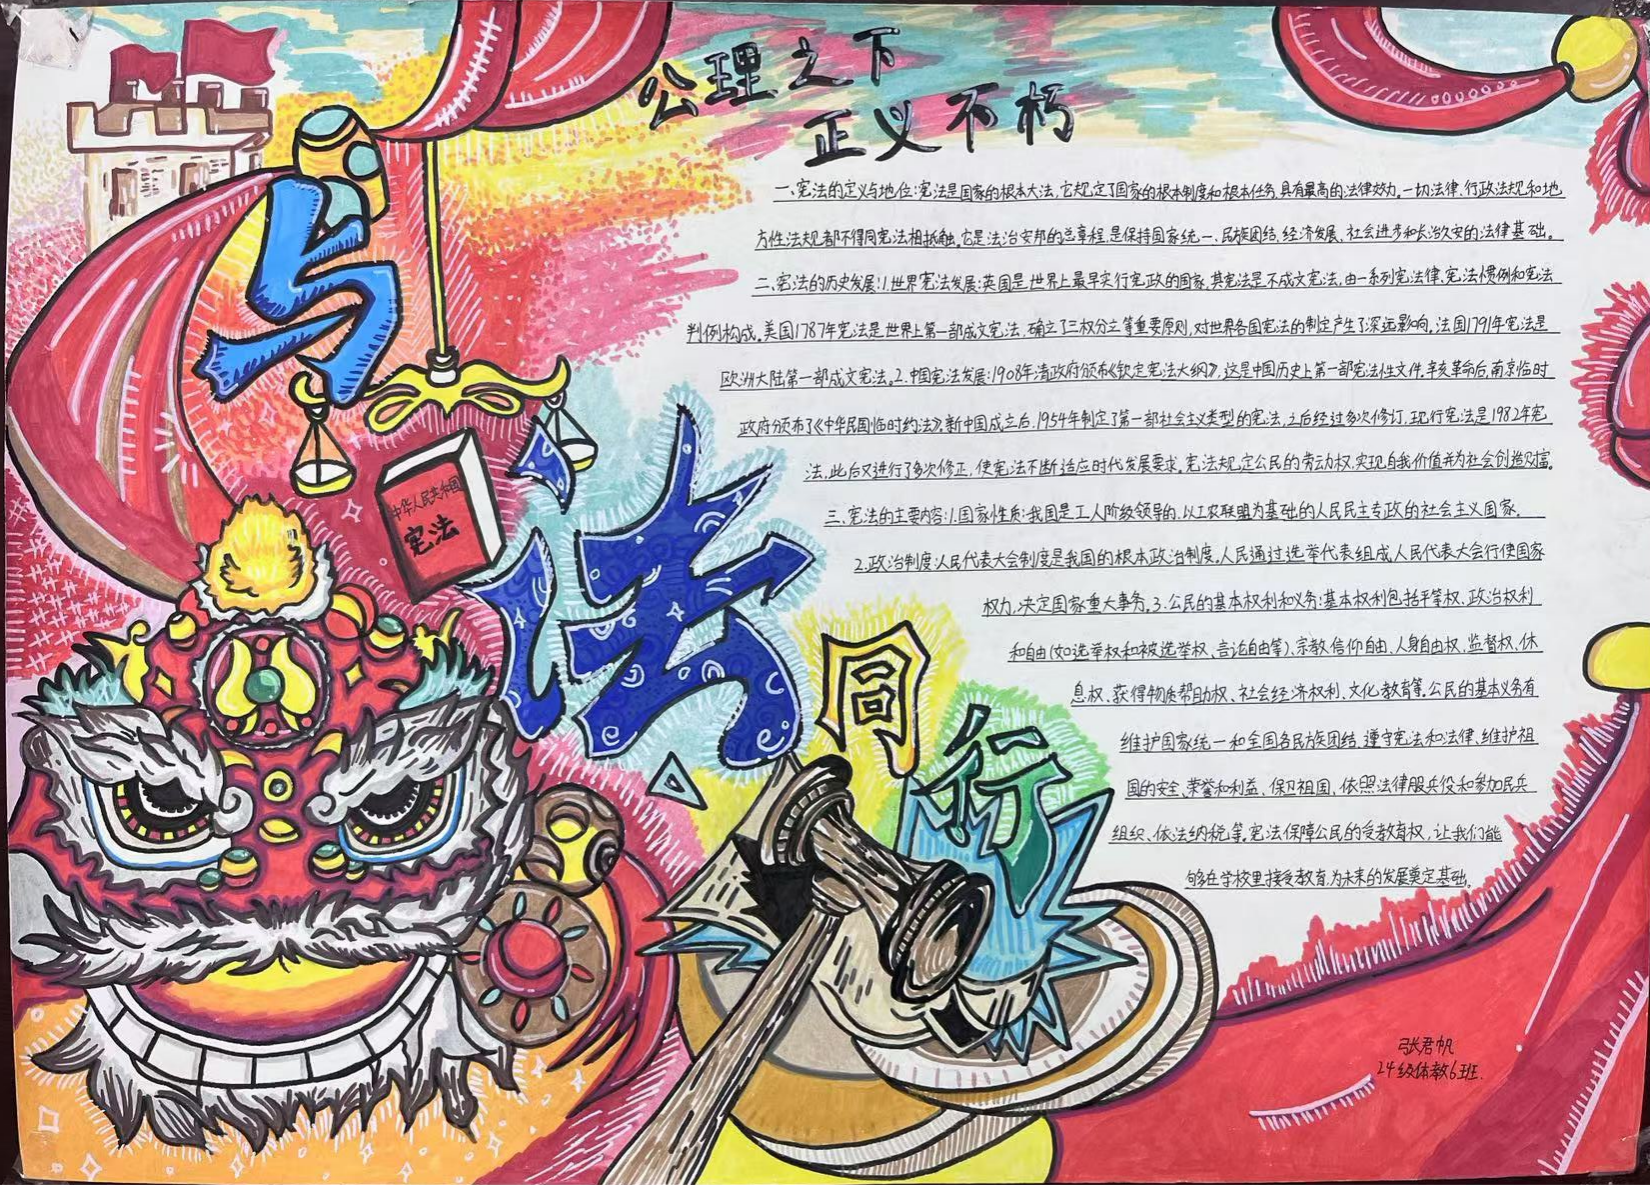 公理之下
正义不朽
与
法
同
行
中华人民共和国
宪法
一、宪法的定义与地位:宪法是国家的根本大法,它规定了国家的根本制度和根本任务,具有最高的法律效力。一切法律,行政法规和地
方性法规都不得同宪法相抵触,它是法治安邦的总章程,是保持国家统一、民族团结,经济发展、社会进步和长治久安的法律基础。
二、宪法的历史发展:1.世界宪法发展:英国是世界上最早实行宪政的国家,其宪法是不成文宪法,由一系列宪法律,宪法惯例和宪法
判例构成。美国1787年宪法是世界上第一部成文宪法,确立了三权分立等重要原则,对世界各国宪法的制定产生了深远影响。法国1791年宪法是
欧洲大陆第一部成文宪法。2.中国宪法发展:1908年清政府颁布《钦定宪法大纲》,这是中国历史上第一部宪法性文件。辛亥革命后,南京临时
政府颁布了《中华民国临时约法》。新中国成立后,1954年制定了第一部社会主义类型的宪法,之后经过多次修订,现行宪法是1982年宪
法,此后又进行了多次修正,使宪法不断适应时代发展要求。宪法规定公民的劳动权,实现自我价值并为社会创造财富。
三、宪法的主要内容:1.国家性质:我国是工人阶级领导的,以工农联盟为基础的人民民主专政的社会主义国家。
2.政治制度:人民代表大会制度是我国的根本政治制度,人民通过选举代表组成人民代表大会行使国家
权力,决定国家重大事务。3.公民的基本权利和义务:基本权利包括平等权、政治权利
和自由(如选举权和被选举权、言论自由等)、宗教信仰自由,人身自由权,监督权、休
息权、获得物质帮助权、社会经济权利,文化教育等。公民的基本义务有
维护国家统一和全国各民族团结,遵守宪法和法律、维护祖
国的安全、荣誉和利益、保卫祖国、依照法律服兵役和参加民兵
组织、依法纳税等。宪法保障公民的受教育权,让我们能
够在学校里接受教育,为未来的发展奠定基础。
张君帆
24级体教6班.